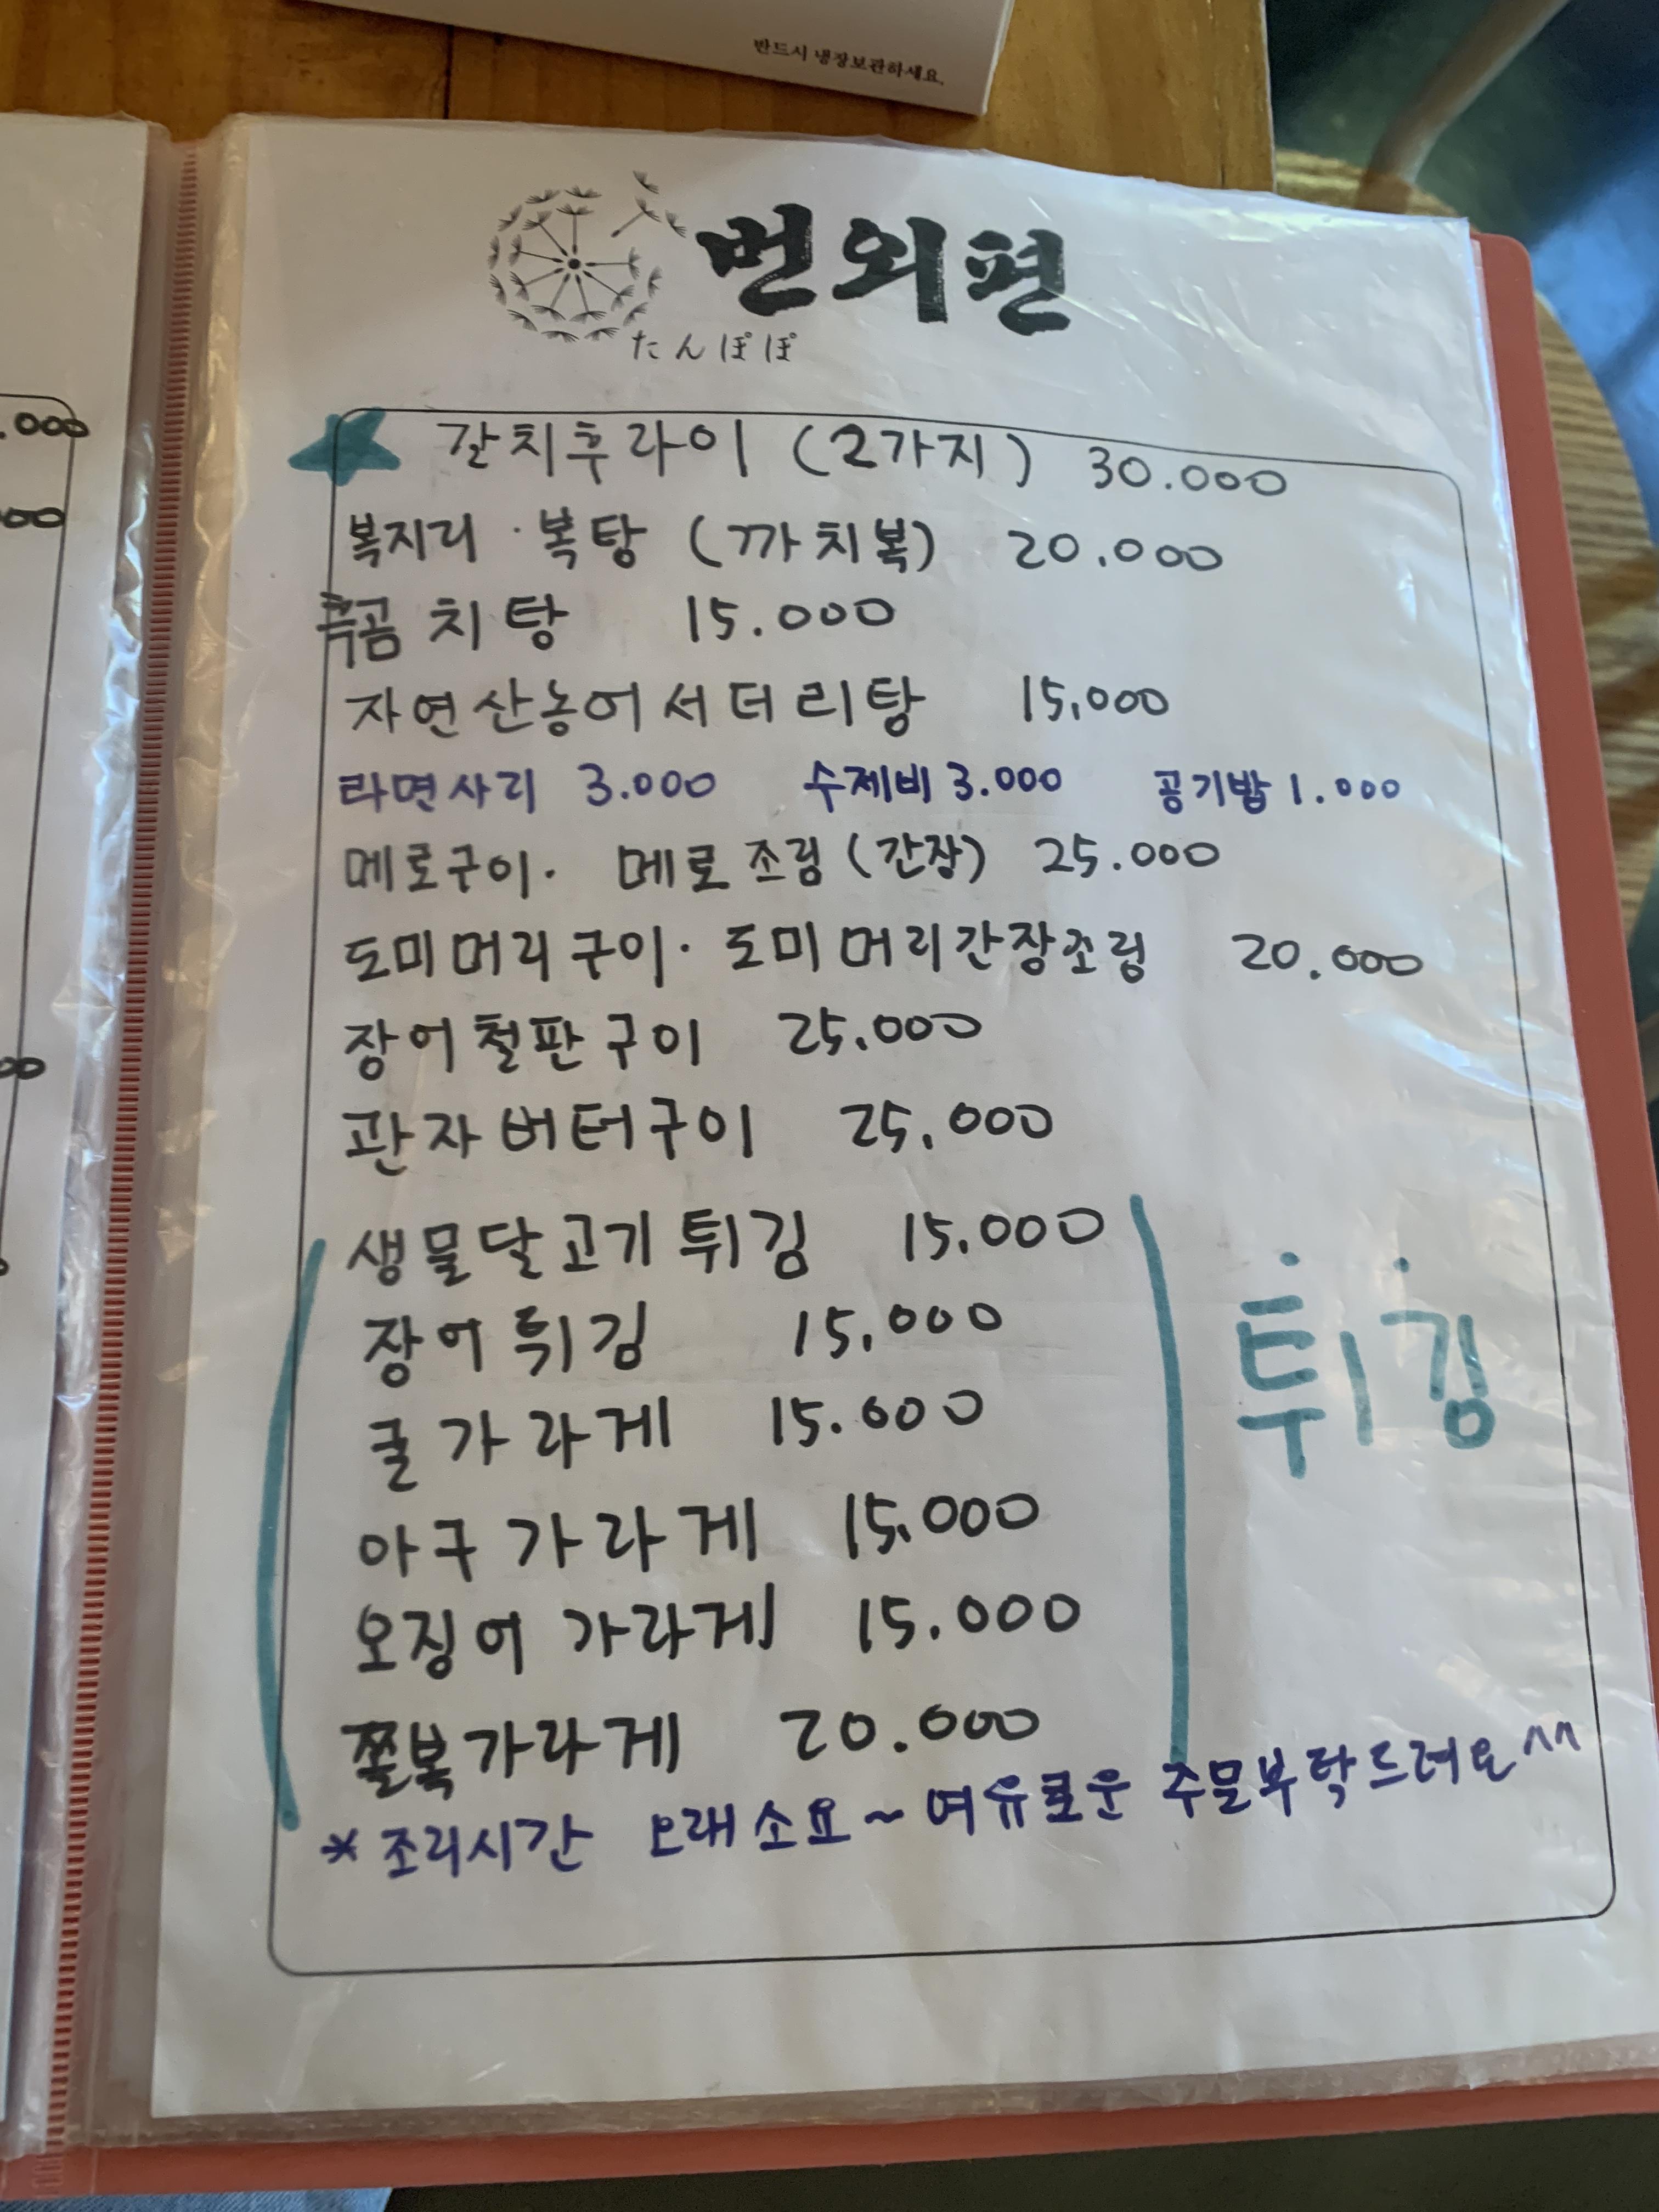 반드시 냉장보관하세요.
번외편
たんぽぽ
갈치후라이 (2가지) 30.000
복지리 · 복탕 (까치복) 20.000
흑곰치탕 15.000
자연산농어서더리탕 15,000
라면사리 3.000 수제비 3.000 공기밥 1.000
메로구이· 메로조림 (간장) 25.000
도미머리구이· 도미머리간장조림 20.000
장어철판구이 25.000
관자버터구이 25,000
생물달고기튀김 15,000
장어튀김 15,000
튀김
굴가라게 15.000
아구가라게 15,000
오징어가라게 15.000
쫄복가라게 20.000
* 조리시간 오래소요~여유로운 주문부탁드려요^^
.000
00
00